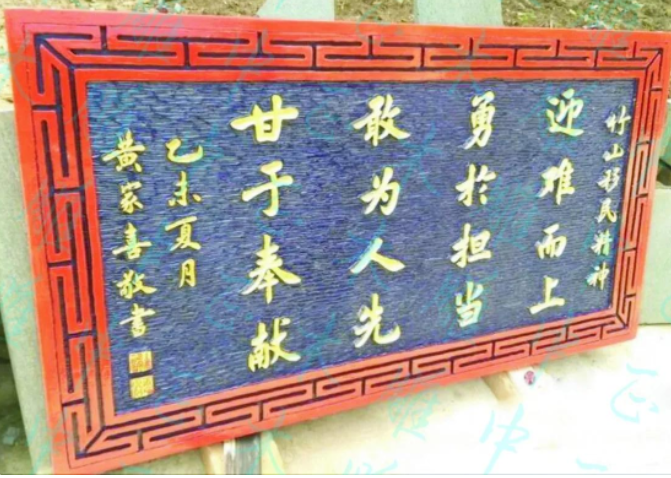 竹山移民精神
迎难而上
勇於担当
敢为人先
甘于奉献
乙未夏月
黄家喜敬书